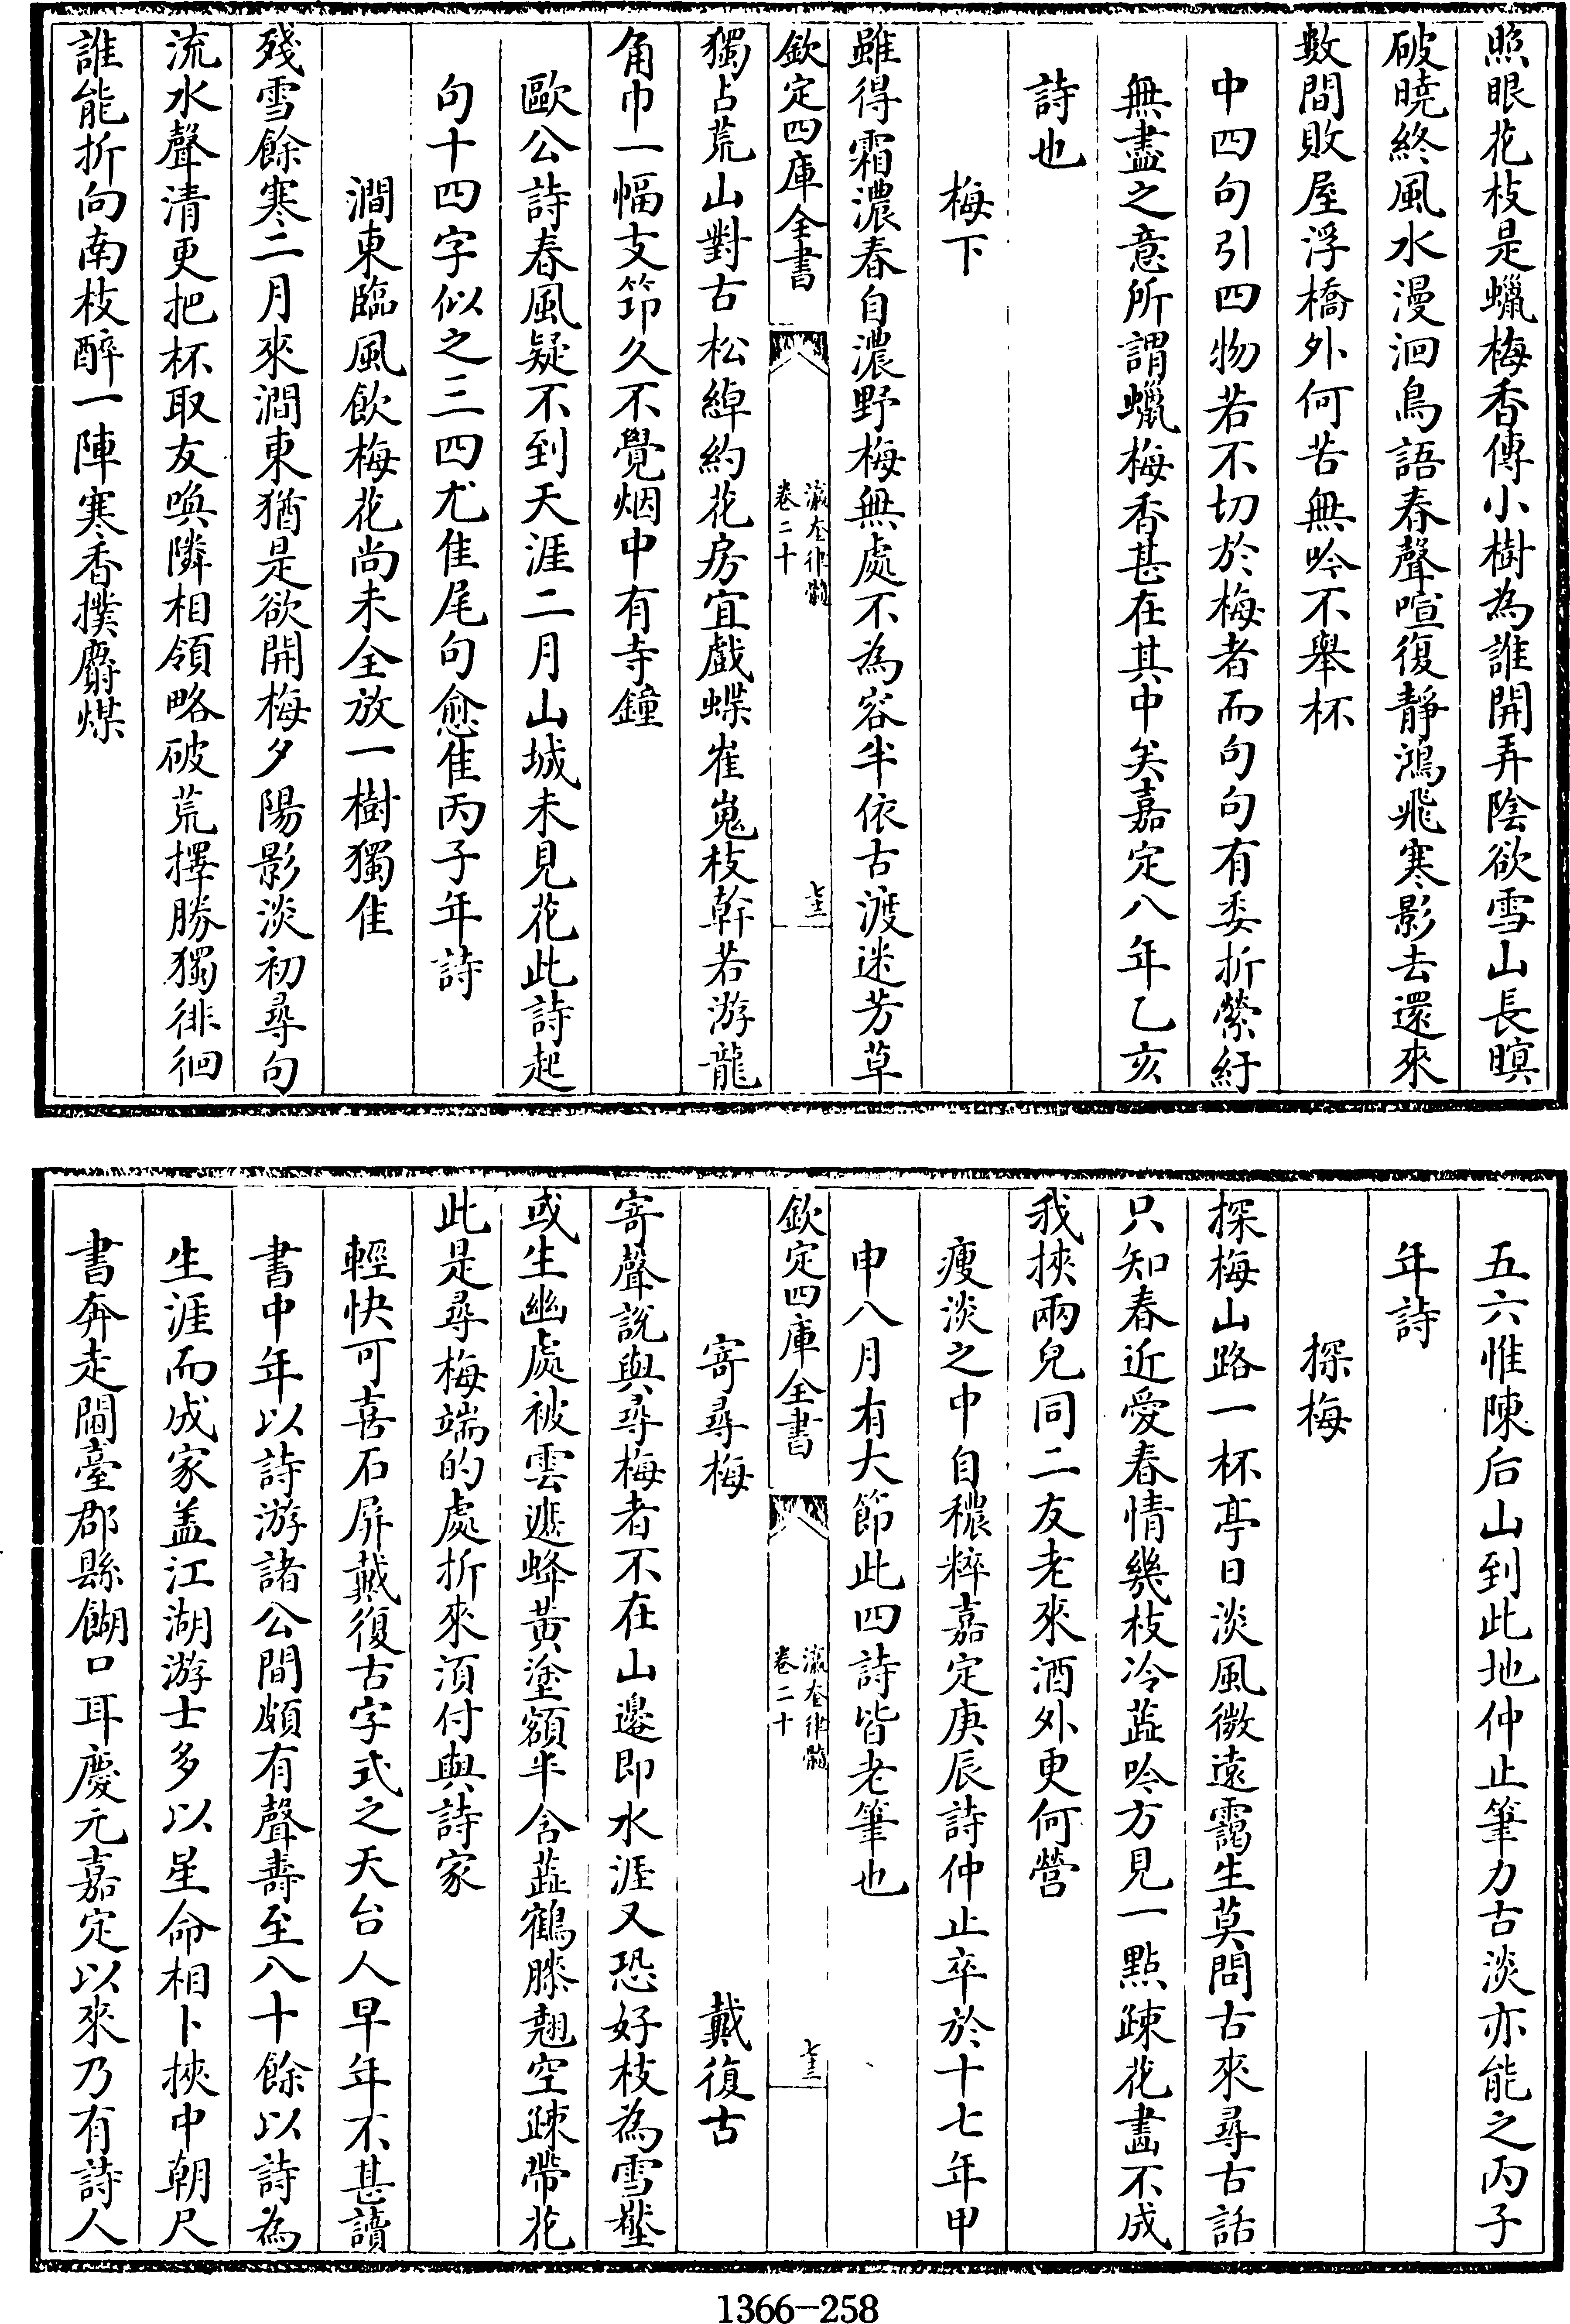 照眼花枝是蠟梅香傳小樹為誰開弄陰欲雪山長暝
破曉終風水漫洄鳥語春聲喧復靜鴻飛寒影去還來
數間敗屋浮橋外何苦無吟不舉杯
中四句引四物若不切於梅者而句句有委折縈紆
無盡之意所謂蠟梅香甚在其中矣嘉定八年乙亥
詩也
梅下
雖得霜濃春自濃野梅無處不為容半依古渡迷芳草
欽定四庫全書
瀛奎律髓
卷二十
獨占荒山對古松綽約花房宜戲蝶崔嵬枝幹若游龍
角巾一幅支筇久不覺烟中有寺鐘
歐公詩春風疑不到天涯二月山城未見花此詩起
句十四字似之三四尤隹尾句愈隹丙子年詩
澗東臨風飲梅花尚未全放一樹獨隹
殘雪餘寒二月來澗東猶是欲開梅夕陽影淡初尋句
流水聲清更把杯取友喚隣相領略破荒擇勝獨徘徊
誰能折向南枝醉一陣寒香撲麝煤
五六惟陳后山到此地仲止筆力古淡亦能之丙子
年詩
探梅
探梅山路一杯亭日淡風微遠靄生莫問古來尋古話
只知春近愛春情幾枝冷蘂吟方見一點疎花畵不成
我挾兩兒同二友老來酒外更何營
瘦淡之中自穠粹嘉定庚辰詩仲止卒於十七年甲
申八月有大節此四詩皆老筆也
欽定四庫全書
瀛奎律髓
卷二十
寄尋梅
戴復古
寄聲說與尋梅者不在山邊即水涯又恐好枝為雪壓
或生幽處被雲遮蜂黃塗額半含蘂鶴膝翹空疎帶花
此是尋梅端的處折來湏付與詩家
輕快可喜石屏戴復古字式之天台人早年不甚讀
書中年以詩游諸公間頗有聲壽至八十餘以詩為
生涯而成家盖江湖游士多以星命相卜挾中朝尺
書奔走閫臺郡縣餬口耳慶元嘉定以來乃有詩人
1366-258